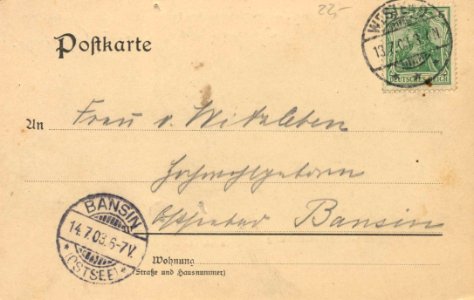 22,-
Postkarte
WESTEND
13.7.03
DEUTSCHES REICH
An Frau v. Witzleben
Hochwohlgeboren
Ostseebad Bansin
BANSIN
14.7.03.6-7V.
(OSTSEE)
Wohnung
(Straße und Hausnummer)